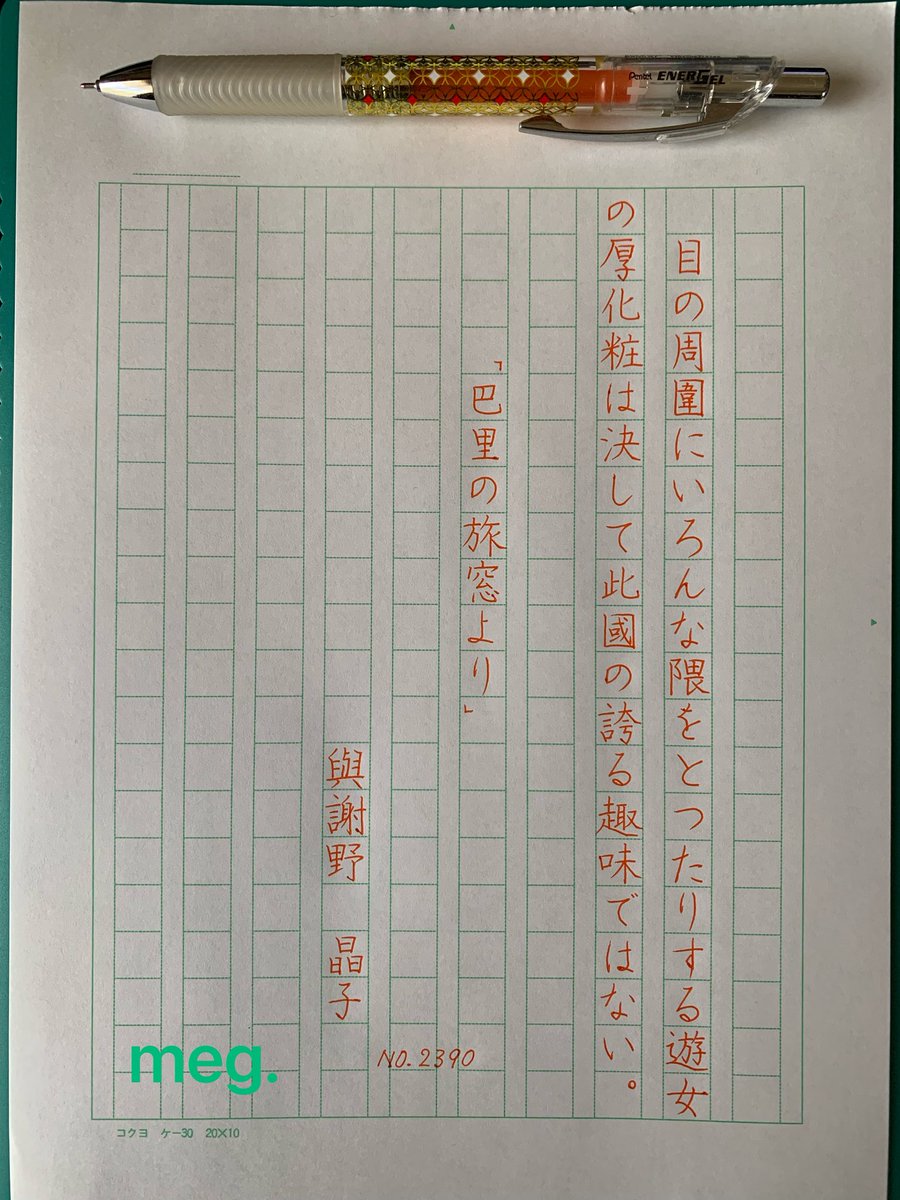 Pentel ENERGEL
目の周圍にいろんな隈をとつたりする遊女
の厚化粧は決して此國の誇る趣味ではない。
「巴里の旅窓より」
與謝野 晶子
NO.2390
meg.
コクヨ ケー30 20×10